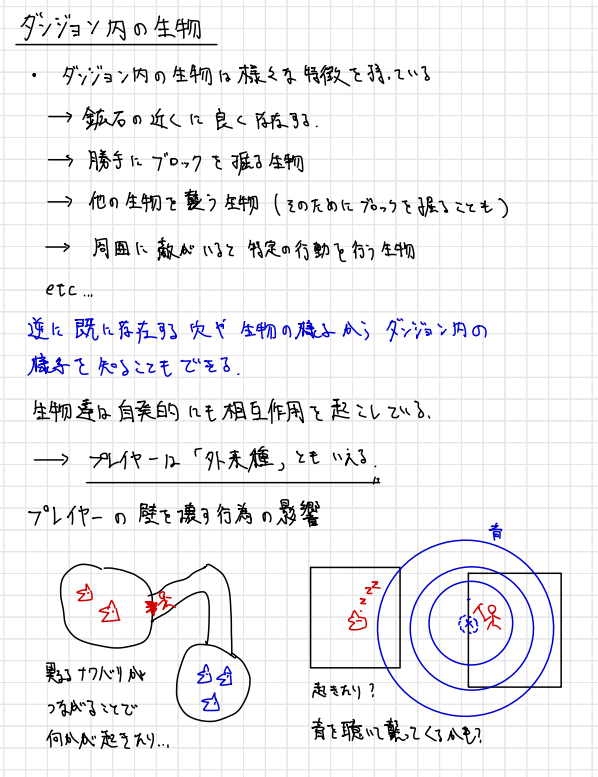 ダンジョン内の生物
・ ダンジョン内の生物は様々な特徴を持っている
→ 鉱石の近くに良く存在する.
→ 勝手にブロックを掘る生物
→ 他の生物を襲う生物 (そのためにブロックを掘ることも)
→ 周囲に敵がいると特定の行動を行う生物
etc...
逆に既に存在する穴や生物の様子からダンジョン内の
様子を知ることもできる.
生物達は自発的にも相互作用を起こしている.
→ プレイヤーは「外来種」ともいえる.
プレイヤーの壁を壊す行為の影響
音
z z z
異なるナワバリが
つながることで
何かが起きたり...
起きたり?
音を聴いて襲ってくるかも?